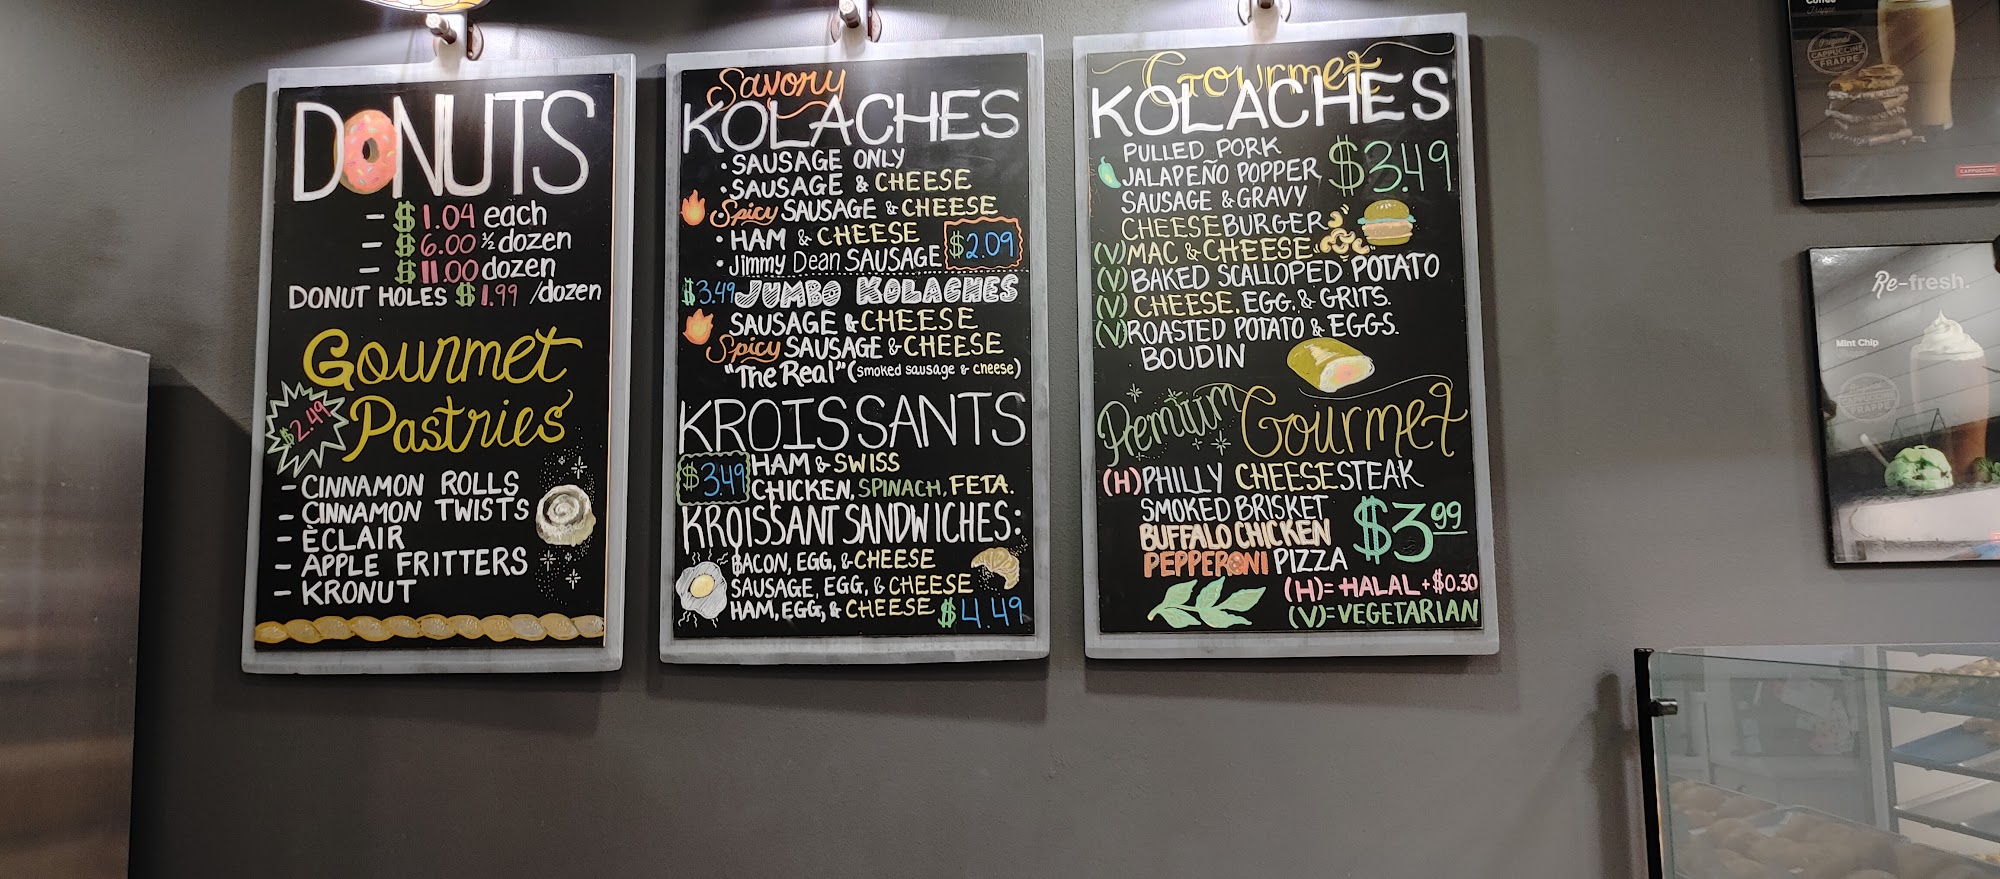 DONUTS
- $1.04 each
- $6.00 ½ dozen
- $11.00 dozen
DONUT HOLES $1.99 /dozen
Gourmet
Pastries
$2.49
- CINNAMON ROLLS
- CINNAMON TWISTS
- ECLAIR
- APPLE FRITTERS
- KRONUT
Savory
KOLACHES
• SAUSAGE ONLY
• SAUSAGE & CHEESE
• Spicy SAUSAGE & CHEESE
• HAM & CHEESE
• Jimmy Dean SAUSAGE
$2.09
$3.49 JUMBO KOLACHES
SAUSAGE & CHEESE
Spicy SAUSAGE & CHEESE
"The Real" (smoked sausage & cheese)
KROISSANTS
$3.49
HAM & SWISS
CHICKEN, SPINACH, FETA.
KROISSANT SANDWICHES:
BACON, EGG, & CHEESE
SAUSAGE, EGG, & CHEESE
HAM, EGG, & CHEESE $4.49
Gourmet
KOLACHES
PULLED PORK
JALAPEÑO POPPER
$3.49
SAUSAGE & GRAVY
CHEESEBURGER
(V) MAC & CHEESE
(V) BAKED SCALLOPED POTATO
(V) CHEESE, EGG, & GRITS.
(V) ROASTED POTATO & EGGS.
BOUDIN
Premium Gourmet
(H) PHILLY CHEESESTEAK
SMOKED BRISKET
BUFFALO CHICKEN
PEPPERONI PIZZA
$3.99
(H) = HALAL + $0.30
(V) = VEGETARIAN
Coffee
Frappe
Original
CAPPUCCINE
FRAPPE
CAPPUCCINE
Re-fresh.
Mint Chip
Original
CAPPUCCINE
FRAPPE